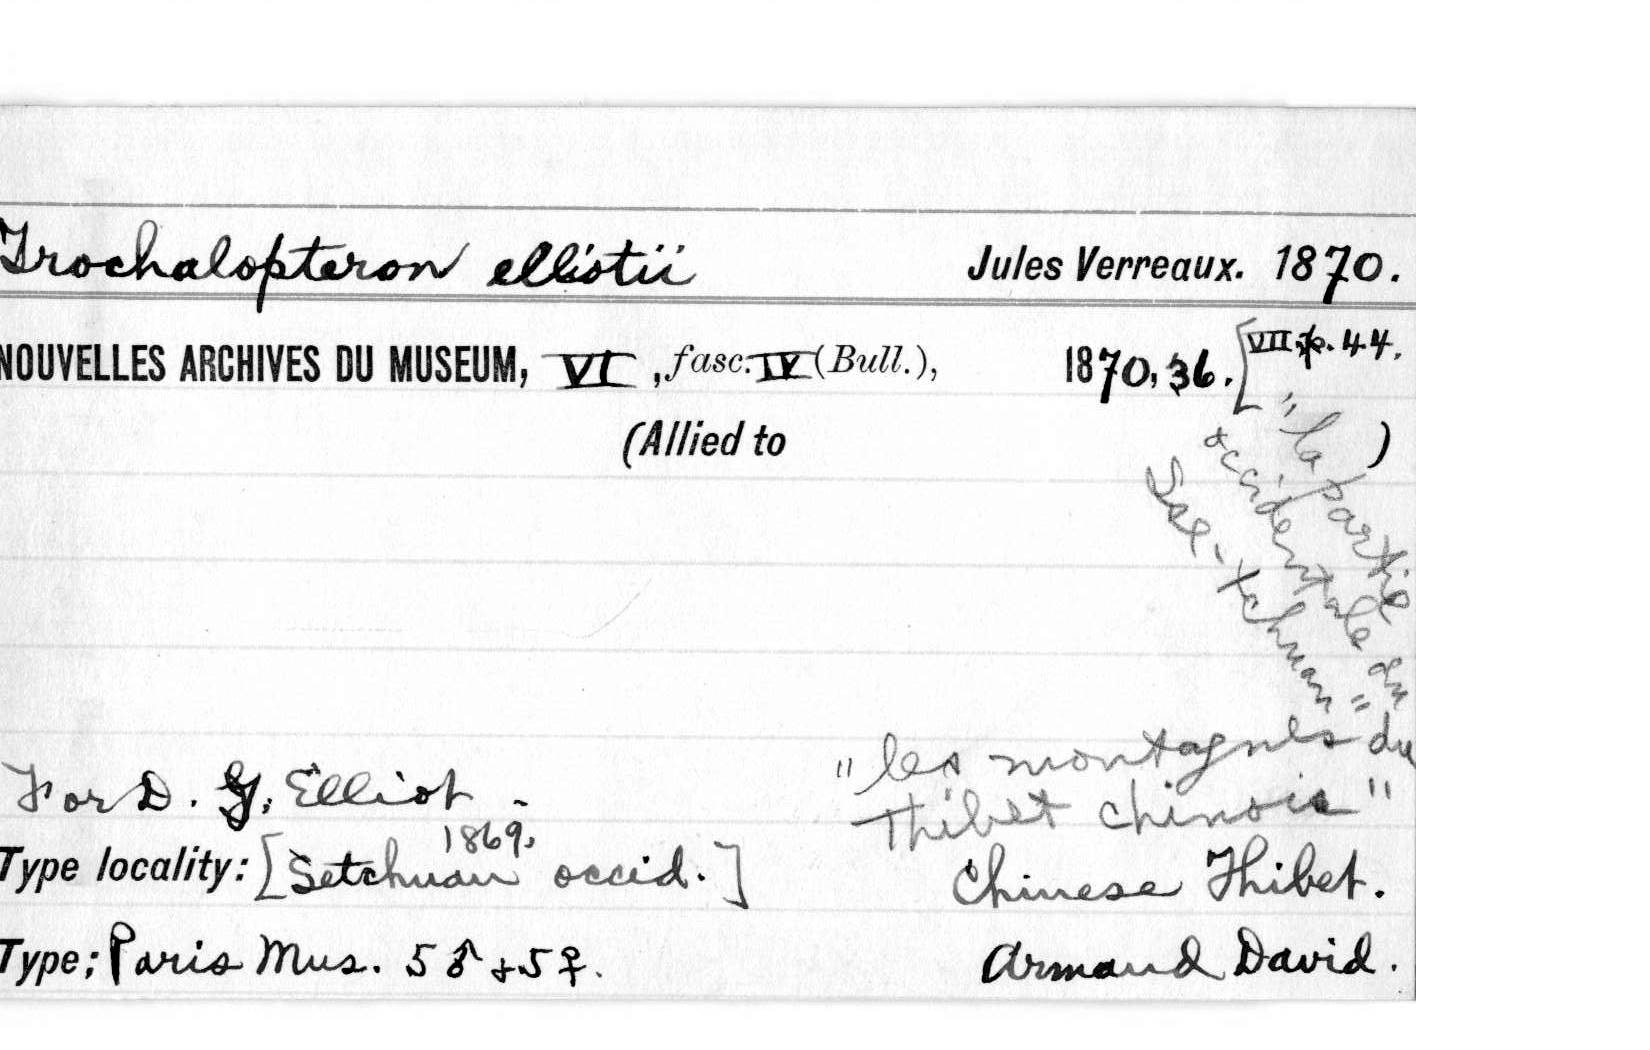 Trochalopteron elliotii Jules Verreaux. 1870.
NOUVELLES ARCHIVES DU MUSEUM, VI, fasc. IV (Bull.), 1870, 36. [VII, p. 44.
(Allied to )
"la partie
occidentale du
Sse-tchuan"
"les montagnes du
Thibet chinois"
For D. G. Elliot -
1869.
Type locality: [Setchuan occid.] Chinese Thibet.
Type; Paris Mus. 5 ♂ + 5 ♀. Armand David.